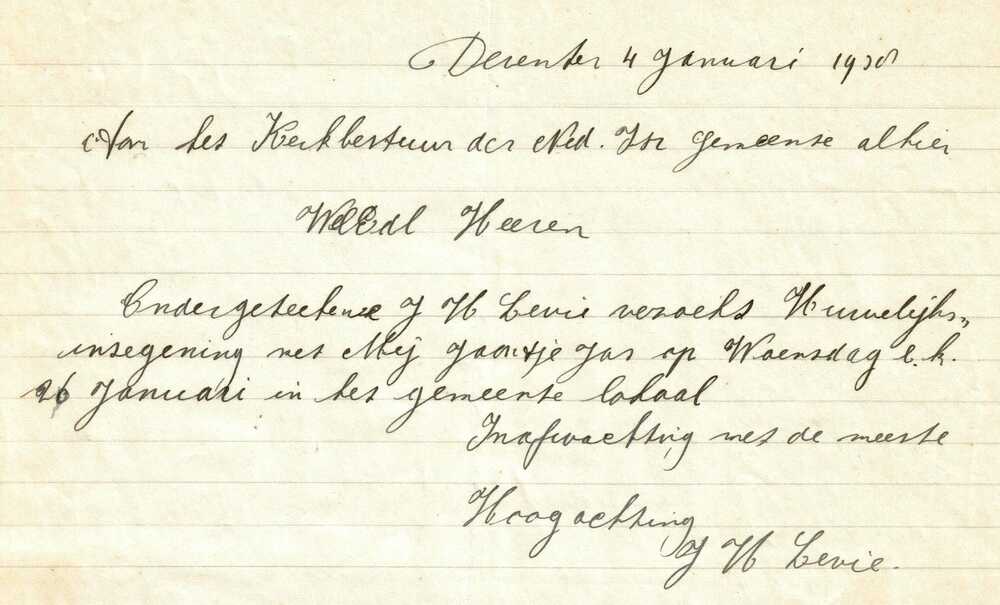 Deventer 4 Januari 1938
Aan het Kerkbestuur der Ned. Isr gemeente alhier
WelEdl Heeren
Ondergeteekende J H Levie verzoekt Huwelijks„
insegening met Mej Jaantje Jas op Woensdag e.k.
26 Januari in het gemeente lokaal
Inafwachting met de meeste
Hoogachting
J H Levie.